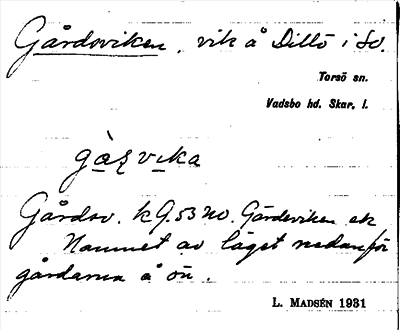 Gårdsviken. vik å Dillö i SO.
Torsö sn.
Vadsbo hd. Skar. l.
gàʒvıka
Gårdsv. k 9.53 NO. Gårdsviken ek
Namnet av läget nedanför
gårdarna å ön.
L. MADSÉN 1931